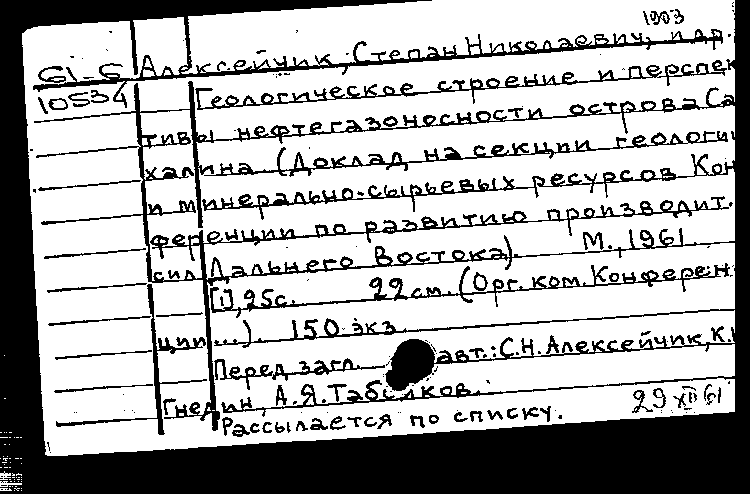 1903
61-5 Алексейчик, Степан Николаевич, и др.
10534 Геологическое строение и перспек
тивы нефтегазоносности острова Са
халина. (Доклад на секции геологи
и минерально-сырьевых ресурсов Кон
ференции по развитию производит.
сил Дальнего Востока). М., 1961.
[1], 25 с. 22 см. (Орг. ком. Конферен
ции...). 150 экз.
Перед загл. авт.: С.Н. Алексейчик, К.
Гнедин, А.Я. Табояков.
Рассылается по списку. 29 XII 61